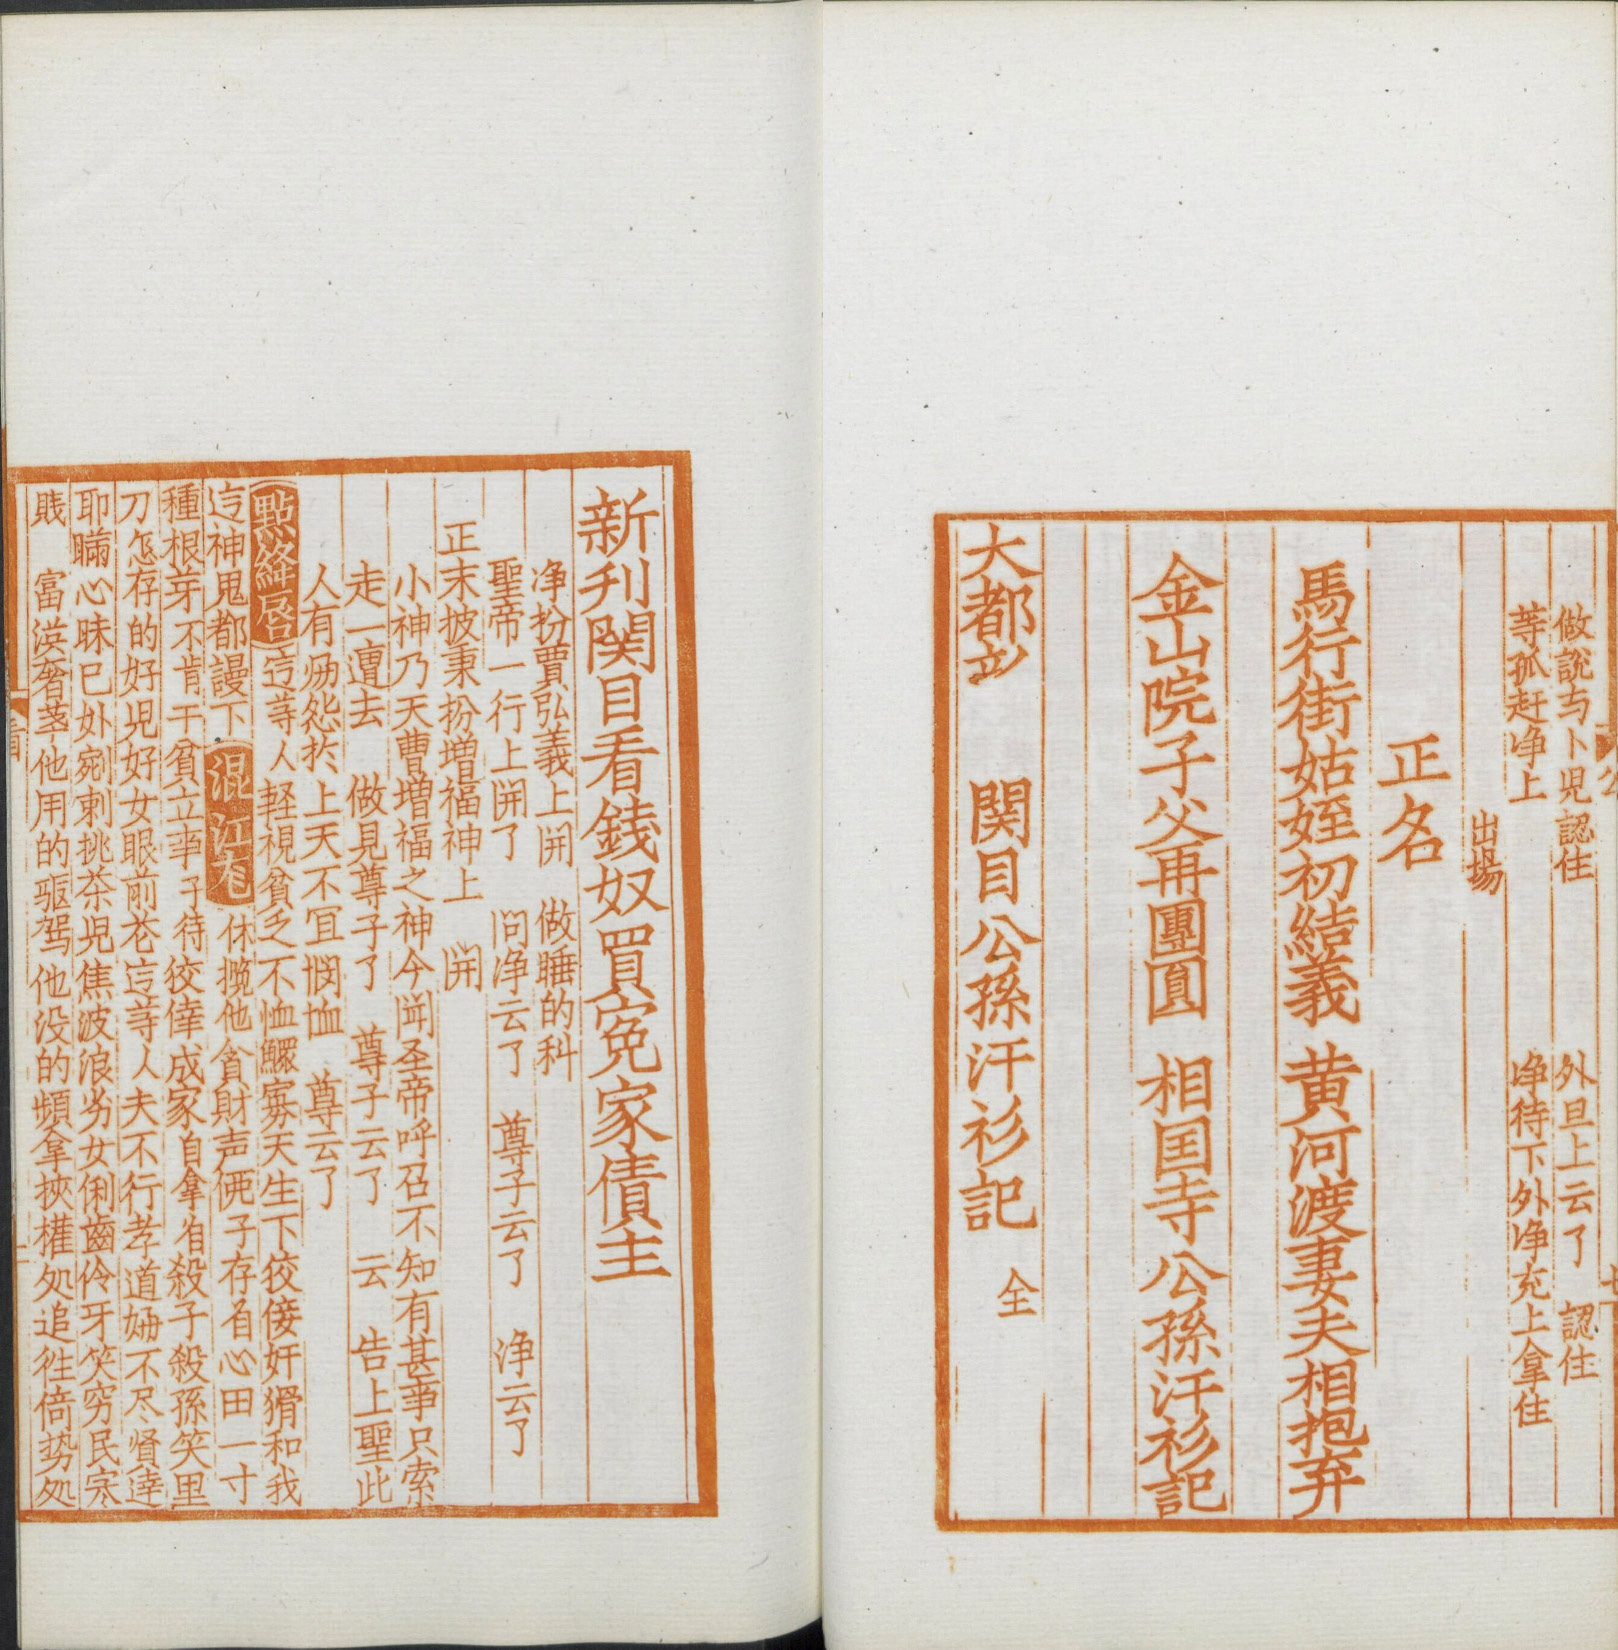 做說与卜児認住　外旦上云了　認住
等孤赶净上　净待下外净充上拿住
出場
正名
馬行街姑姪初結義　黄河渡妻夫相抱弃
金山院子父再團圓　相国寺公孫汗衫記
大都新　関目公孫汗衫記　全
新刋関目看錢奴買寃家債主
净扮賈弘義上開　做睡的科
聖帝一行上開了　问净云了　尊子云了　净云了
正末披秉扮增福神上　開
小神乃天曹增福之神今闻圣帝呼召不知有甚事只索
走一遭去　做見尊子了　尊子云了　云　告上聖此
人有痾怨扵上天不冝憫恤　尊云了
點絳唇　这等人軽視貧乏不恤鰥寡天生下狡佞奸猾和我
这神鬼都謾下　混江尨　休攬他貪財声倻子存着心田一寸
種根芽不肯干貧立亊子待狡倖成家自拿着殺子殺孫笑里
刀怎存的好児好女眼前花这等人夫不行孝道婦不尽賢達
耶瞞心昧己外剜剌挑茶児焦波浪劣女俐齒伶牙笑穷民寒
賤　富漭奢莖他用的驱駕他没的頻拿挾權処追徃倍势処